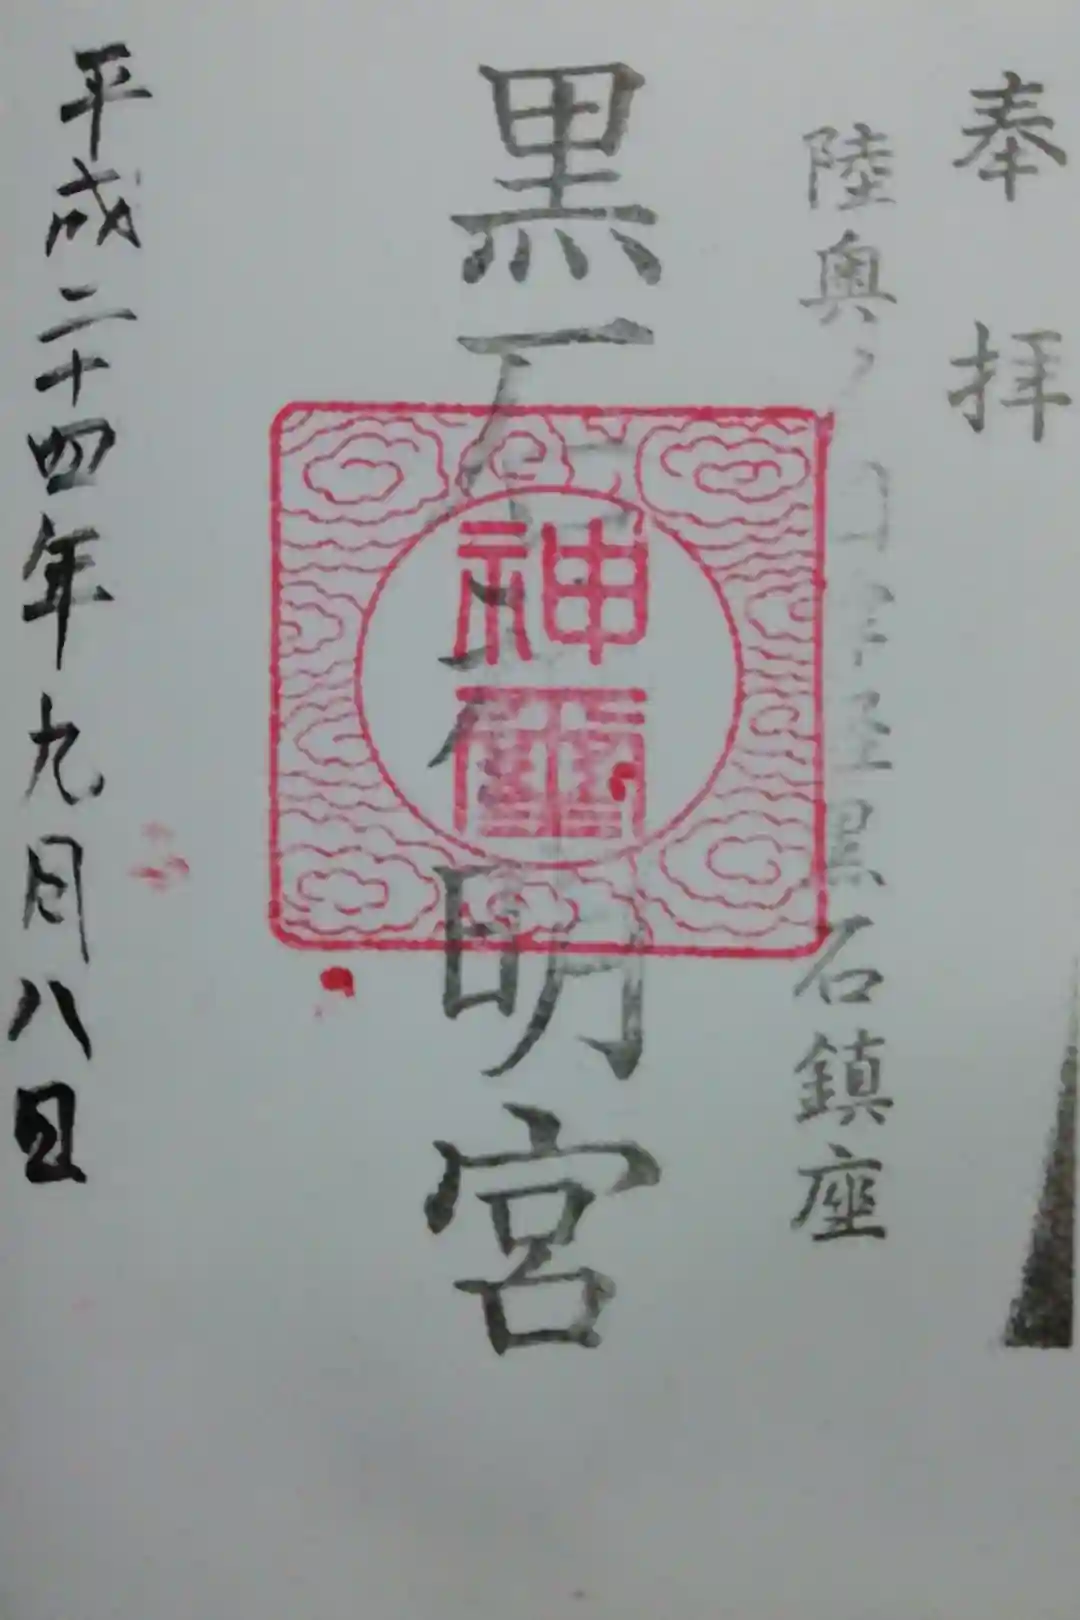 奉拝
陸奥ノ国津軽黒石鎮座
黒石神明宮
神璽
平成二十四年九月八日